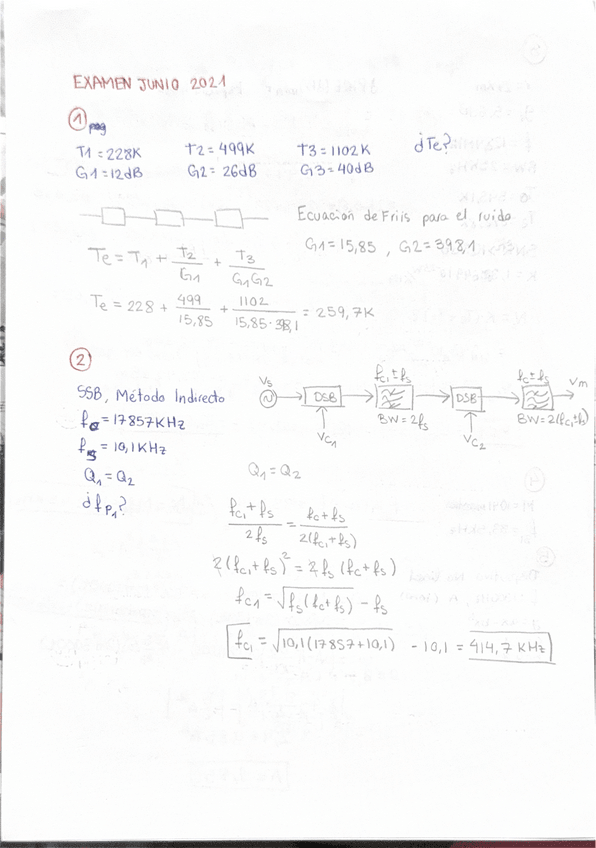 EXAMEN JUNIO 2021
1
T1 = 228K T2 = 499K T3 = 1102K ¿Te?
G1 = 12dB G2 = 26dB G3 = 40dB
Ecuación de Friis para el ruido
G1 = 15,85 , G2 = 398,1
Te = T1 + T2/G1 + T3/G1G2
Te = 228 + 499/15,85 + 1102/15,85·398,1 = 259,7K
2
SSB, Método Indirecto
fc = 17857KHz
fs = 10,1KHz
Q1 = Q2
¿fp1?
Vs DSB fc1 ± fs DSB fc ± fs Vm
BW = 2fs BW = 2(fc1 ± fs)
Vc1 Vc2
Q1 = Q2
fc1 + fs/2fs = fc + fs/2(fc1 + fs)
2(fc1 + fs)² = 2fs (fc + fs)
fc1 = √fs(fc + fs) - fs
fc1 = √10,1(17857 + 10,1) - 10,1 = 414,7 KHz